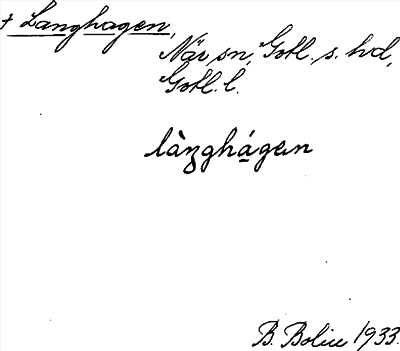 + Langhagen,
När sn, Gotl. s. hd,
Gotl. l.
làŋghágen
B. Bolin 1933.